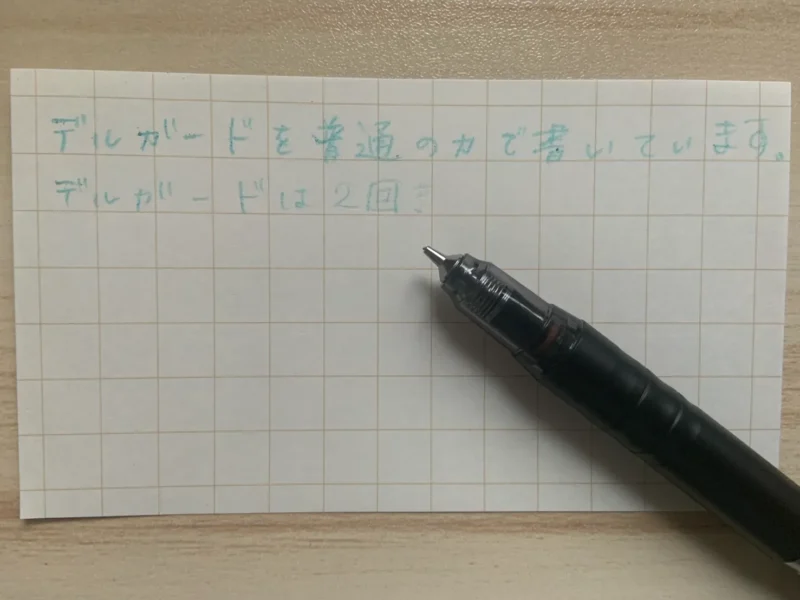 デルガードを普通の力で書いています。
デルガードは2回